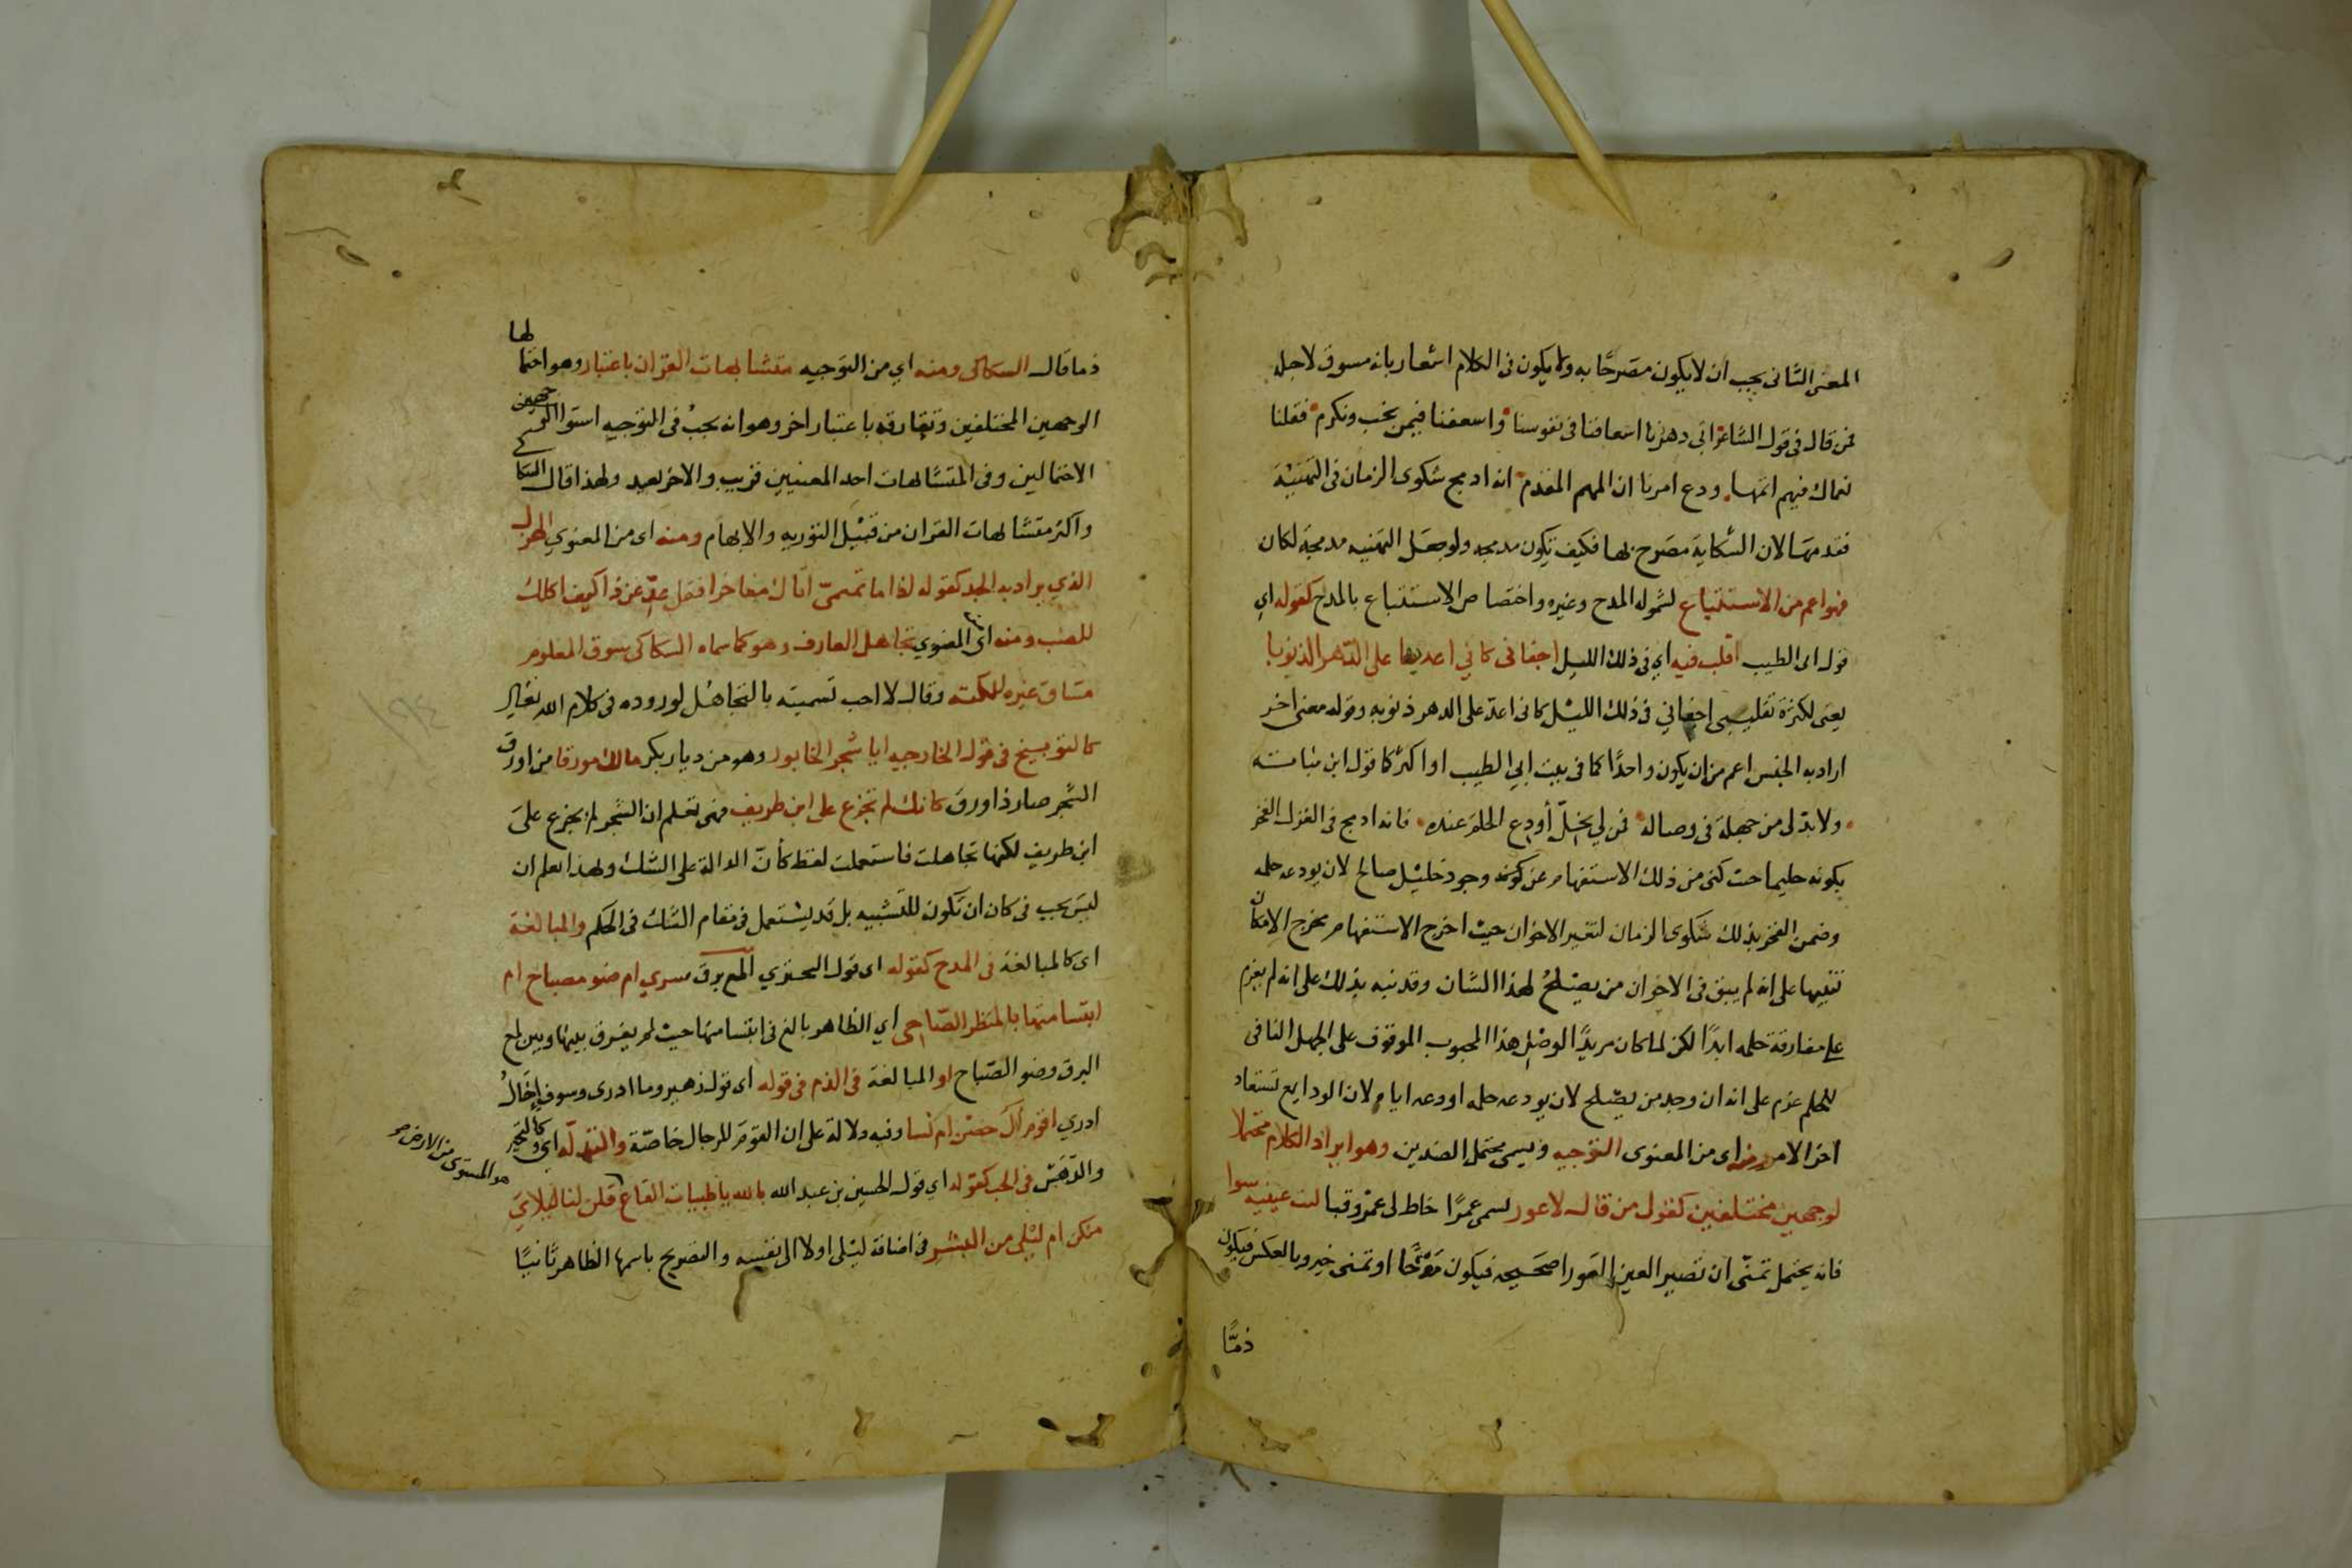 المعنى الثانى يجب ان لا يكون مصرحًا به ولا يكون فى الكلام اشعار بانه مسوق لاجله
فمن قال فى قول الشاعر ابى دهرنا اسعافنا فى نفوسنا واسعفنا فيمن نحب ونكرم فقلنا
نعماك فيهم اتمها ودع امرنا ان المهم المقدم انه ادمج شكوى الزمان فى التهنية
فقد سها لان الشكاية مصرح بها فكيف تكون مدمجه ولو جعل التهنيه مدمجة لكان
فهو اعم من الاستتباع لشموله المدح وغيره واختصاص الاستتباع بالمدح كقوله اي
قول ابى الطيب اقلب فيه اي فى ذلك الليل اجفانى كاني اعد بها على الدهر الذنوبا
يعنى لكثرة تقليبى اجفاني فى ذلك الليل كانى اعدّ على الدهر ذنوبه وقوله معنى اخر
اراد به الجنس اعم من ان يكون واحدًا كما فى بيت ابي الطيب او اكثر كما قول ابن نباتة
ولا بدّ لى من جهلة فى وصاله فمن لي بخلّ أودع الحلم عنده فانه ادمج فى الغزل الفخر
بكونه حليما حيث كنى عن ذلك الاستفهام عن كونه وجود خليل صالح لان يودعه حلمه
وضمن الفخر بذلك شكوى الزمان لتغير الاخوان حيث اخرج الاستفهام مخرج الامكان
تنبيها على انه لم يبق فى الاخوان من يصلحُ لهذا الشان وقد نبه بذلك على انه لم يعزم
على مفارقة حلمه ابدًا لكن لما كان مريدًا لوصل هذا المحبوب الموقوف على الجهل النافى
للحلم عزم على انه ان وجد من يصلح لان يودعه حلمه اودعه اياه لان الودايع تستعاد
اخر الامر ومنه اى من المعنوى التوجيه ويسمى محتمل الضدين وهو ايراد الكلام محتملا
لوجهين مختلفين كقول من قال لاعور يسمى عمرًا خاط لى عمرو قبا ليت عينيه سوا
فانه يحتمل تمنّى ان تصير العين العورا صحيحه فيكون مدحًا او تمنى خير وبالعكس فيكون
ذمًّا
ذما قال السكاكى ومنه اي من التوجيه متشابهات القران باعتبار وهو احتمالها
الوجهين المختلفين وتفارقه باعتبار اخر وهو انه يجبُ فى التوجيه استوا
الاحتمالين وفى المتشابهات احد المعنيين قريب والاخر بعيد ولهذا قال السكا
واكثر متشابهات القران من قبيل التوريه والابهام ومنه اى من المعنوي الهزل
الذي يراد به الجد كقوله اذا ما تميمىّ اتاك مفاخرا فقل عدّ عن ذا كيف اكلك
للضب ومنه اى المعنوي تجاهل العارف وهو كما سماه السكاكى سوق المعلوم
مساق غيره لنكته وقال لا احب تسميته بالتجاهل لوروده فى كلام الله تعالى
كالتوبيخ فى قول الخارجيه ايا شجر الخابور وهو من ديار بكر مالك مورقا من اورق
الشجر صار ذا ورق كانك لم تجزع على ابن طريف فهى تعلم ان الشجر لم يجزع على
ابن طريف لكنها تجاهلت فاستعملت لفظ كأنّ الدالة على الشك وبهذا يعلم ان
ليس يجب فى كان ان تكون للتشبيه بل قد يستعمل فى مقام الشك فى الحكم والمبالغة
اى كالمبالغة فى المدح كقوله اى قول البحتري ألمع برق سرى ام ضو مصباح ام
ابتسامتها بالمنظر الضاحى اي الظاهر بالغ فى ابتسامتها حيث لم يفرق بينها وبين لمع
البرق وضو الصباح او المبالغة فى الذم فى قوله اى قول زهير وما ادرى وسوف إخالُ
ادري اقوم آل حصن ام نسا وفيه دلالة على ان القوم للرجال خاصّة والتدلّه اى وكالتحير
والدّهش فى الحب كقوله اي قول الحسين بن عبد الله بالله يا ظبيات القاع قلن لنا ليلاي
منكن ام ليلى من البشر فى اضافة ليلى اولا الى نفسه والتصريح باسمها الظاهر ثانيًا
هو المستوى من الارض